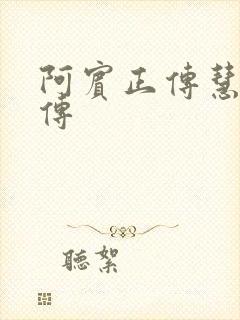 阿賓正傳慧
傳
聽絮